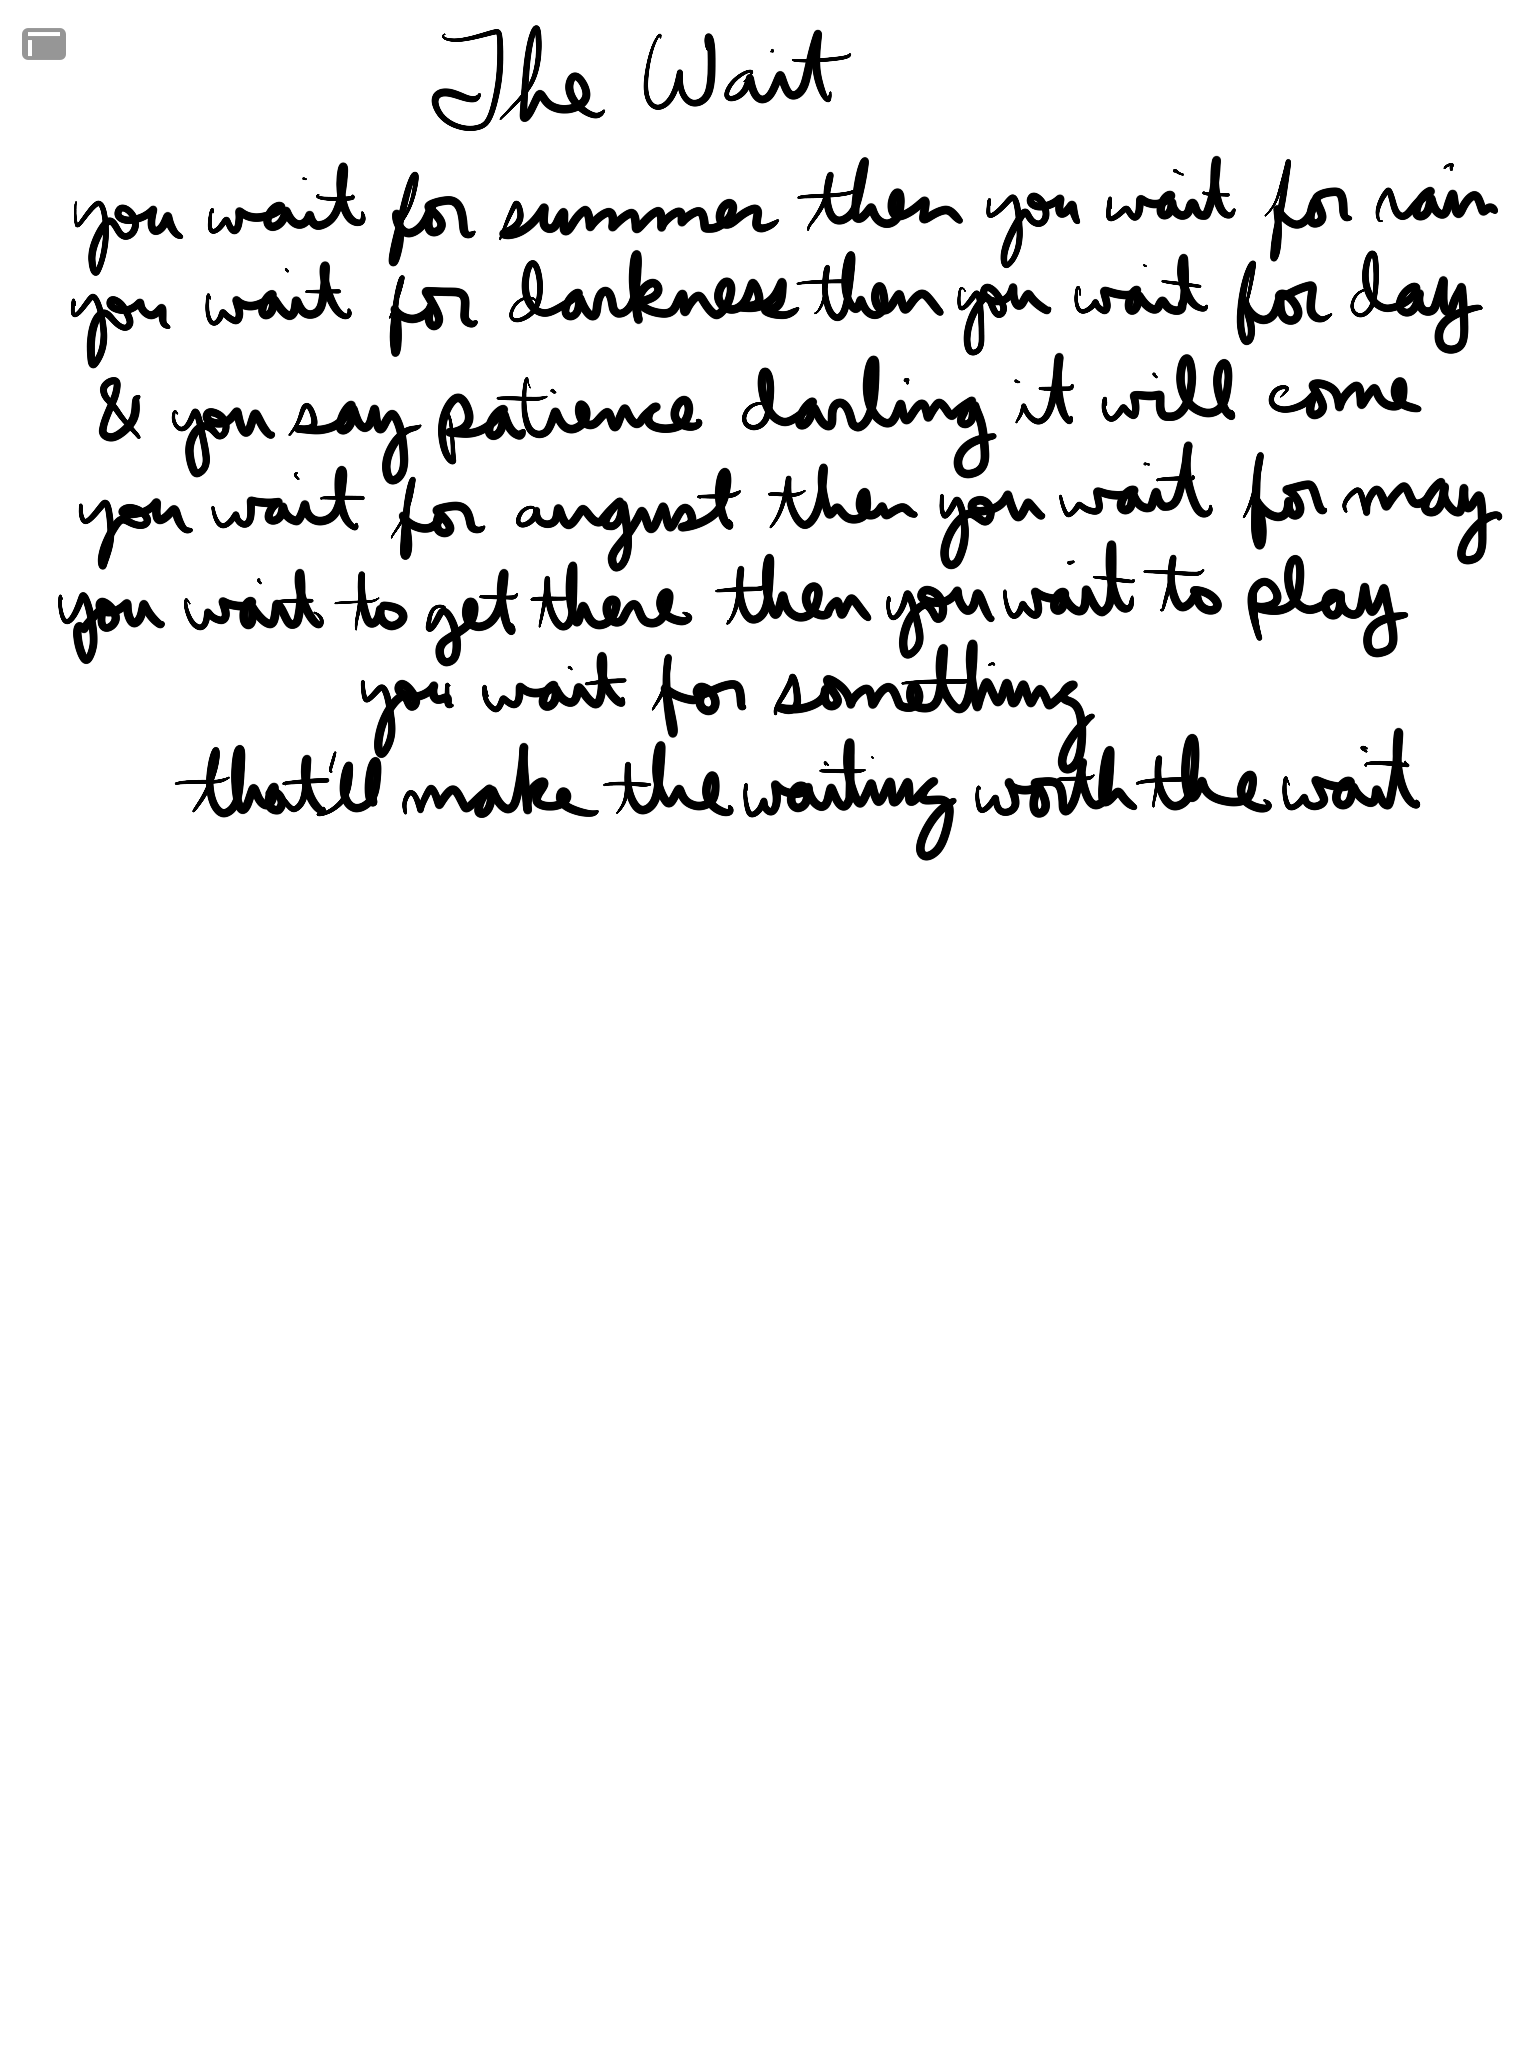 The Wait
you wait for summer then you wait for rain
you wait for darkness then you wait for day
& you say patience darling it will come
you wait for august then you wait for may
you wait to get there then you wait to play
you wait for something
that'll make the waiting worth the wait